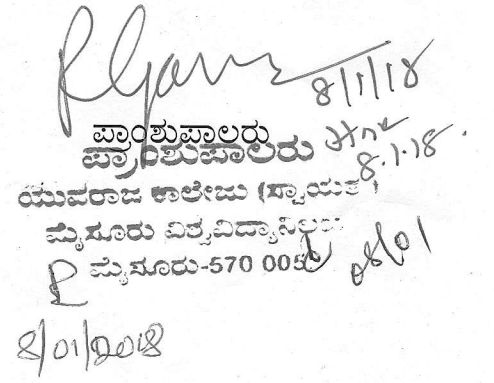 8/1/18
ಪ್ರಾಂಶುಪಾಲರು
ಪ್ರಾಂಶುಪಾಲರು
8.1.18.
ಯುವರಾಜ ಕಾಲೇಜು (ಸ್ವಾಯತ್ತ)
ಮೈಸೂರು ವಿಶ್ವವಿದ್ಯಾನಿಲಯ
ಮೈಸೂರು-570 005
08/01
8/01/2018